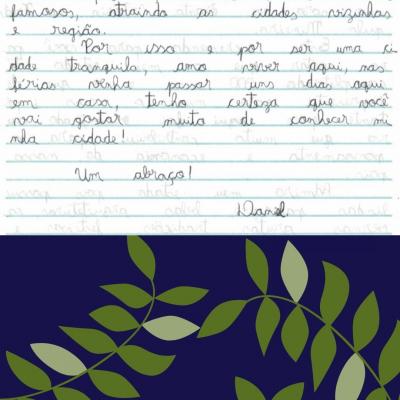 famosos, atraindo as cidades vizinhas
e região.
Por isso e por ser uma ci
dade tranquila, amo viver aqui, nas
férias venha passar uns dias aqui
em casa, tenho certeza que você
vai gostar muito de conhecer mi
nha cidade!
Um abraço!